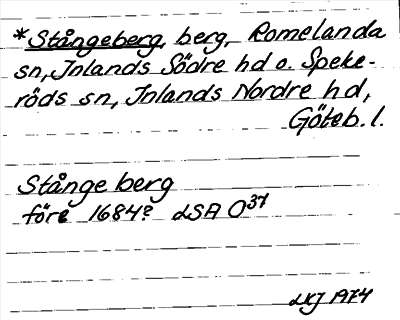 *Stångeberg, berg, Romelanda
sn, Inlands Södre hd o. Speke-
röds sn, Inlands Nordre hd,
Göteb. l.
Stånge berg
före 1684? LSA O37
LKJ 1974